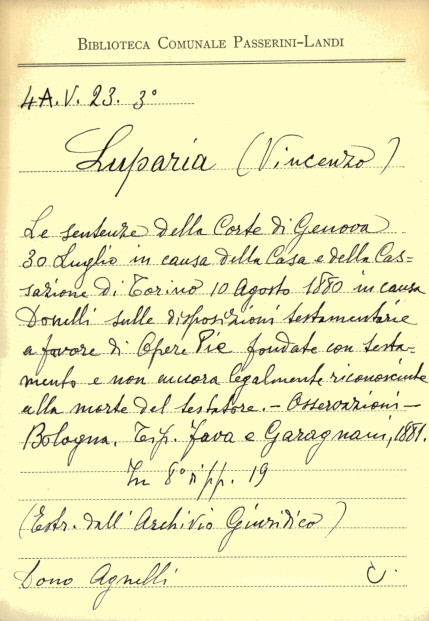 BIBLIOTECA COMUNALE PASSERINI-LANDI
4A.V. 23. 3°
Luparia (Vincenzo)
Le sentenze della Corte di Genova
30 Luglio in causa della Casa e della Cas-
sazione di Torino 10 Agosto 1880 in causa
Donelli sulle disposizioni testamentarie
a favore di Opere Pie fondate con testa-
mento e non ancora legalmente riconosciute
alla morte del testatore. - Osservazioni -
Bologna. Tip. Fava e Garagnani, 1881.
In 8° pp. 19
(Estr. dall'Archivio Giuridico)
Dono Agnelli